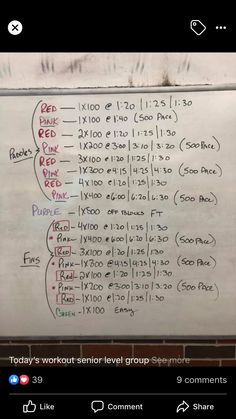 RED — 1x100 @ 1:20 | 1:25 | 1:30
PINK — 1x100 @ 1:40 (500 PACE)
RED — 2x100 @ 1:20 | 1:25 | 1:30
PINK — 1x200 @ 3:00 | 3:10 | 3:20 (500 PACE)
Paddles
RED — 3x100 @ 1:20 | 1:25 | 1:30
PINK — 1x300 @ 4:15 | 4:25 | 4:30 (500 PACE)
RED — 4x100 @ 1:20 | 1:25 | 1:30
PINK — 1x400 @ 6:00 | 6:20 | 6:30 (500 PACE)
PURPLE — 1x500 OFF BLOCKS FT
RED — 4x100 @ 1:20 | 1:25 | 1:30
PINK — 1x400 @ 6:00 | 6:20 | 6:30 (500 PACE)
RED — 3x100 @ 1:20 | 1:25 | 1:30
Fins
PINK — 1x300 @ 4:15 | 4:25 | 4:30 (500 PACE)
RED — 2x100 @ 1:20 | 1:25 | 1:30
PINK — 1x200 @ 3:00 | 3:10 | 3:20 (500 PACE)
RED — 1x100 @ 1:20 | 1:25 | 1:30
GREEN — 1x100 Easy
Today's workout senior level group See more
39
9 comments
Like
Comment
Share